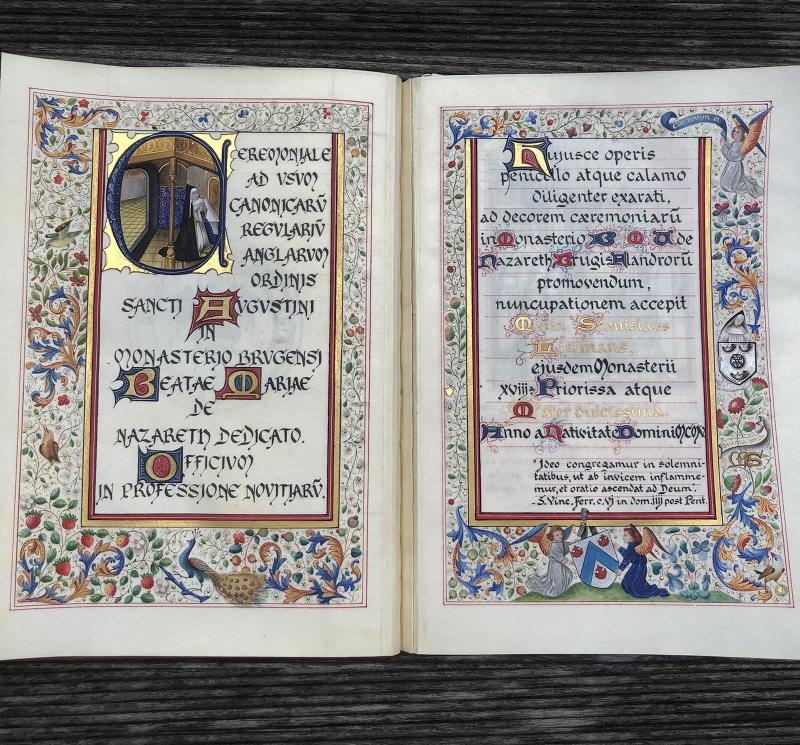 CEREMONIALE
AD VSVM
CANONICARŪ
REGVLARIŪ
ANGLARVM
ORDINIS
SANCTI AVGVSTINI
IN
MONASTERIO BRVGENSI
BEATAE MARIAE
DE
NAZARETH DEDICATO.
OFFICIVM
IN PROFESSIONE NOVITIARŪ.
Hujusce operis
penicello atque calamo
diligenter exarati,
ad decorem cæremoniarū
in Monasterio B M V de
Nazareth Brugis Flandrorū
promovendum,
nuncupationem accepit
Maria Stanislaus
ejusdem Monasterii
xviijᵃ Priorissa atque
Mater dulcissima.
Anno a Nativitate Domini
"Ideo congregamur in solemni-
tatibus, ut ab invicem inflamme-
mur, et oratio ascendat ad Deum".
- S. Vinc. Ferr. c. vj in dom. iiij post Pent.
unum et